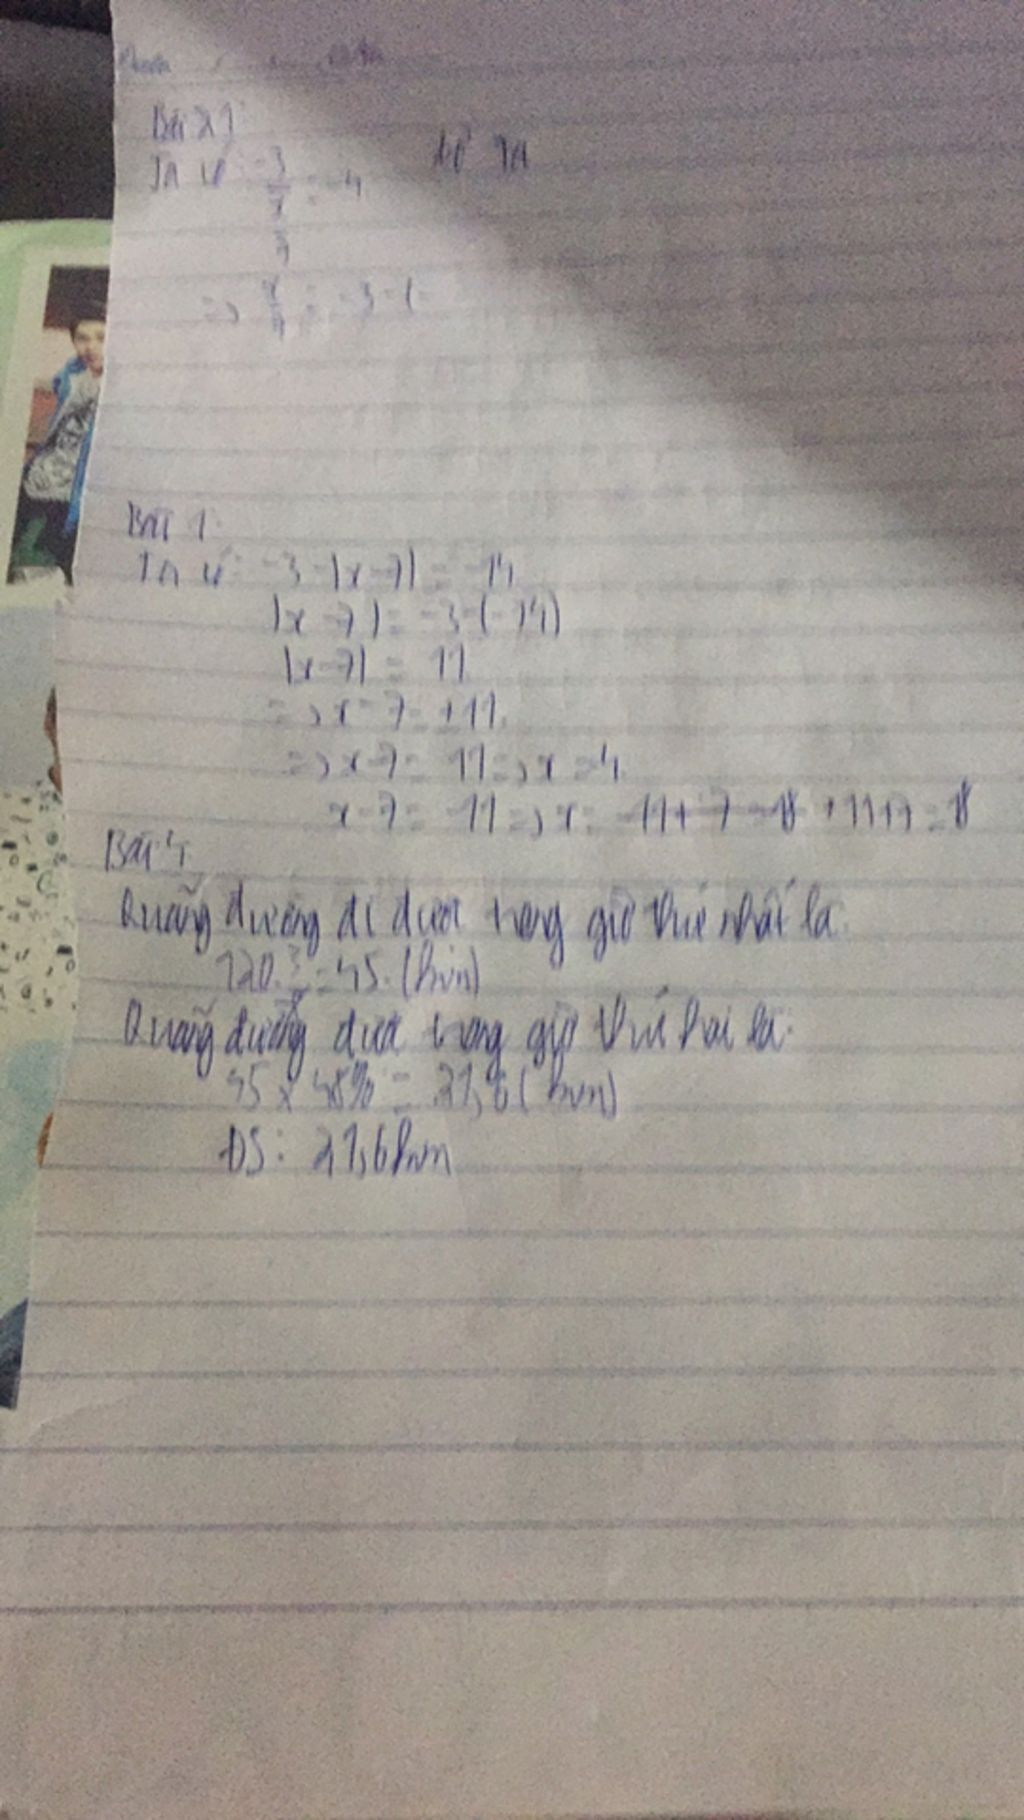 Bài 2)
Ta có: -3
= -4
=> x/7 = -3-(-
Bài 1:
Ta có: -3-|x-7| = -14
|x-7| = -3-(-14)
|x-7| = 11
=> x-7 = ±11.
=> x-7 = 11 => x = 4.
x-7 = -11 => x = -11+7 = 18 +11+7 = 18
Bài 4
Quãng đường đi được trong giờ thứ nhất là:
120.3/8 = 45. (km)
Quãng đường được trong giờ thứ hai là:
45 x 48% = 21,6 (km)
ĐS: 21,6km